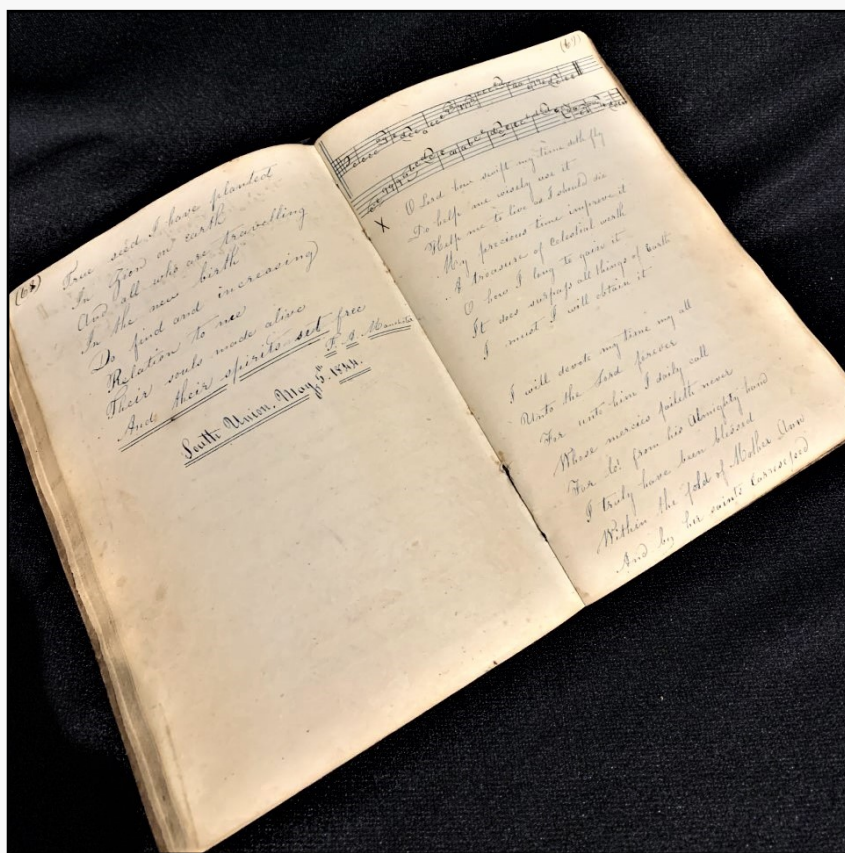 (68)
True seed I have planted
In Zion on earth
And all who are travelling
In the new birth
Do find and increasing
Relation to me
Their souls made alive
And their spirits set free
F. A.
South Union. May 5th 1844.
(69)
O Lord how swift my time doth fly
Do help me wisely use it
Help me to live as I should die
My precious time improve it
A treasure of Celestial worth
O how I long to gain it
It does surpass all things of Earth
I must I will obtain it
X
I will devote my time my all
Unto the Lord forever
For unto him I daily call
Whose mercies faileth never
For lo! from his Almighty hand
I truly have been blessed
Within the fold of Mother Ann
And by her saints Carressed